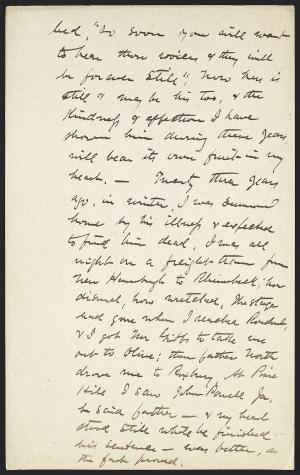 bed, "so soon you will want
to hear those voices & they will
be forever still"; now hers is
still & may be his too, & the
kindness & affection I have
shown him during these years,
will bear its own fruit in my
heart. — Twenty three years
ago, in winter, I was summoned
home by his illness & expected
to find him dead, I was all
night on a freight train from
New Hamburgh to Rhinebeck; how
dismal, how wretched, the stage
had gone when I reached Rondout,
& I got Mr Griffs to take me
out to Olive; then father North
drove me to Roxbury. At Pine
Hill I saw John Powell Jr,
he said father — & my heart
stood still while he finished
his sentence — was better, as
the fact proved.